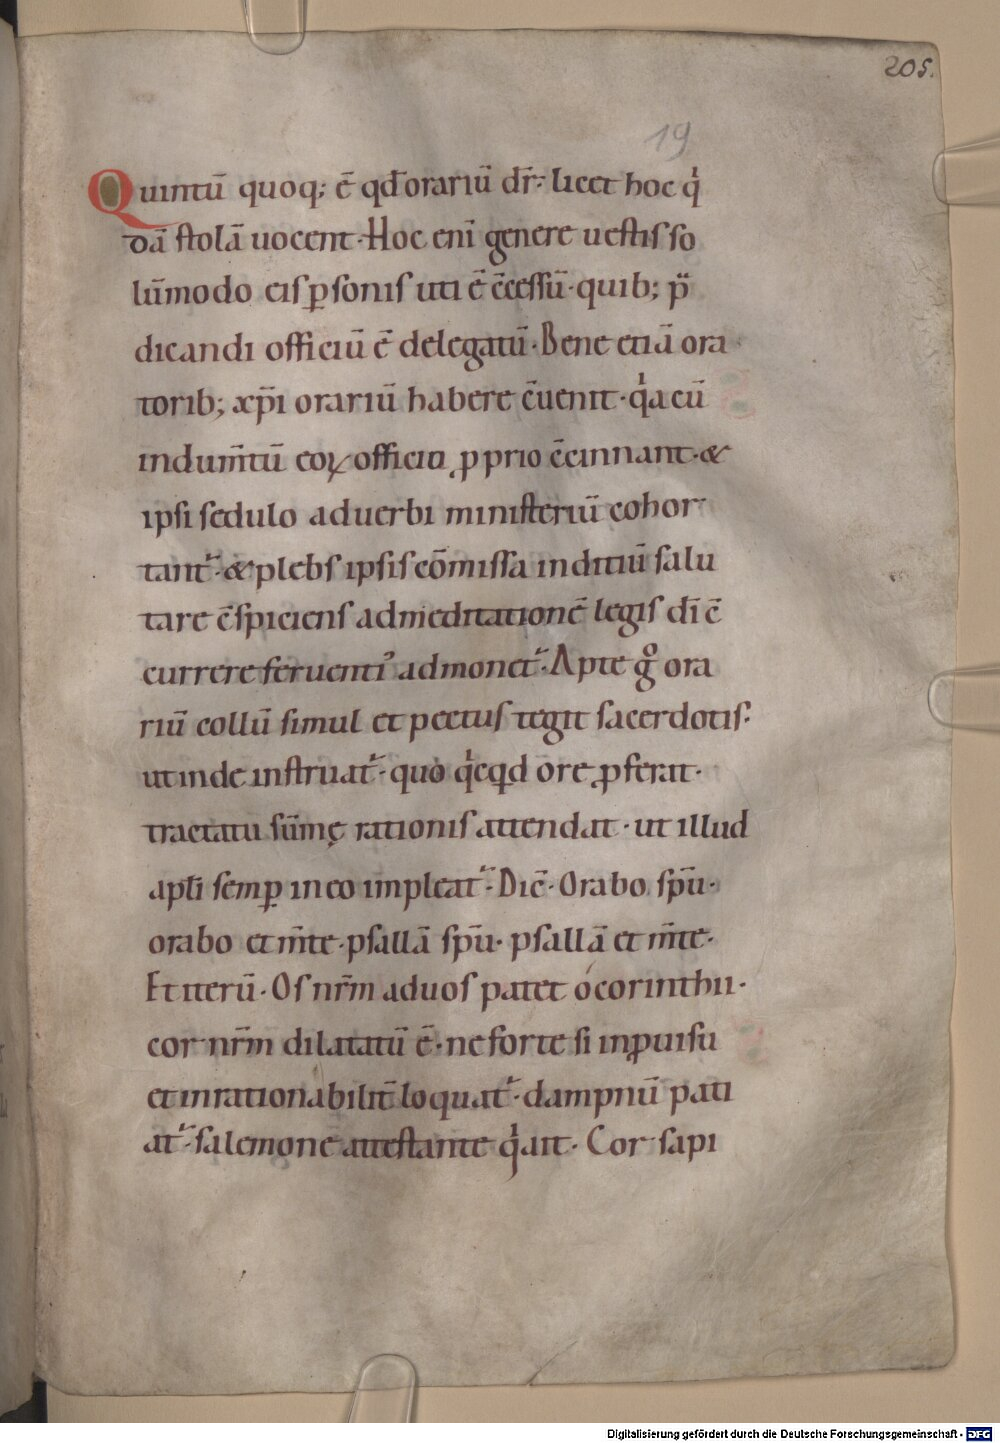 205.
19
Quintū quoq; ē qđ orariū dr̄. licet hoc q̍
dā stolā uocent. Hoc eni̅ genere uestis so
lūmodo eis ꝑsonis uti ē c̄cessū. quib; p̈
dicandi officiū ē delegatū. Bene etiā ora
torib; xp̄i orariū habere c̄uenit. q̍a cū
indum̄tū eoꝝ officia ꝓprio c̄cinnant. &
ipsi sedulo ad uerbi ministeriū cohor
tant᷑. & plebs ipsis cōmissa inditiū salu
tare c̄spiciens ad meditationē legis dī c̄
currere feruenti᾽ ad monet᷑. Apte gͦ ora
riū collū simul et pectus tegit sacerdotis.
ut inde instruat᷑. quo q̍cqd ore ꝓferat.
tractatu sūmę rationis attendat. ut illud
apłi semꝑ in eo impleat᷑. Dic̄. Orabo sp̄u.
orabo et m̄te. psallā sp̄u. psallā et m̄te.
Et iterū. Os nr̄m ad uos patet ó corinthii.
cor nr̄m dilatatū ē. ne forte si inꝓuisu
et inrationabilit̄ loquat᷑. dampnū pati
at᷑. salemone attestante q̍ ait. Cor sapi
Digitalisierung gefördert durch die Deutsche Forschungsgemeinschaft - DFG